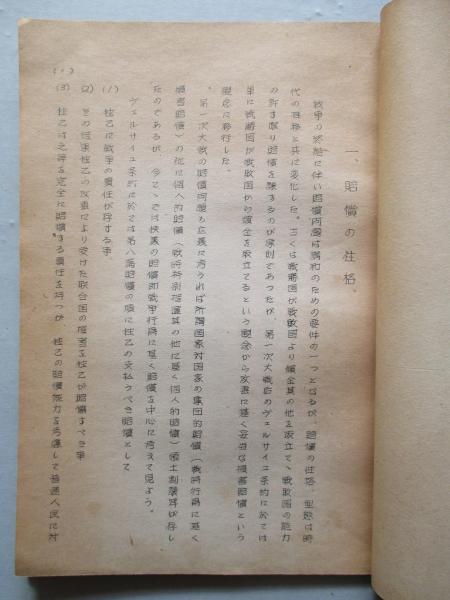 一、賠償の性格、
戦争の終結に伴い賠償問題は講和のための要件の一つとなるが、賠償の性格、型態は時
代の推移と共に変化した。古くは戦勝国が戦敗国より償金其の他を取立て、戦敗国の能力
の許す限り賠償を課するのが原則であつたが、第一次大戦后のヴェルサイユ条約に於ては
単に戦勝国が戦敗国から償金を取立てるという観念から損害に基く妥当な損害賠償という
観念に移行した。
第一次大戦の賠償問題も広義に考うれば所謂国家対国家の集団的賠償(戦時行為に基く
損害賠償)の他に個人的賠償(戦時特別措置其の他に基く個人的賠償)領土割譲等が存し
たのであるが、今こゝでは狭義の賠償即戦争行為に基く賠償を中心に考えて見よう。
ヴェルサイユ条約に於ては第八篇賠償の項に独乙の支払うべき賠償として
(1) 独乙に戦争の責任が存する事
(2) その結果独乙の攻撃により受けた联合国の損害を独乙が賠償すべき事
(3) 独乙は之等を完全に賠償する責任を持つが、独乙の賠償能力を考慮して普通人民に対
(1)